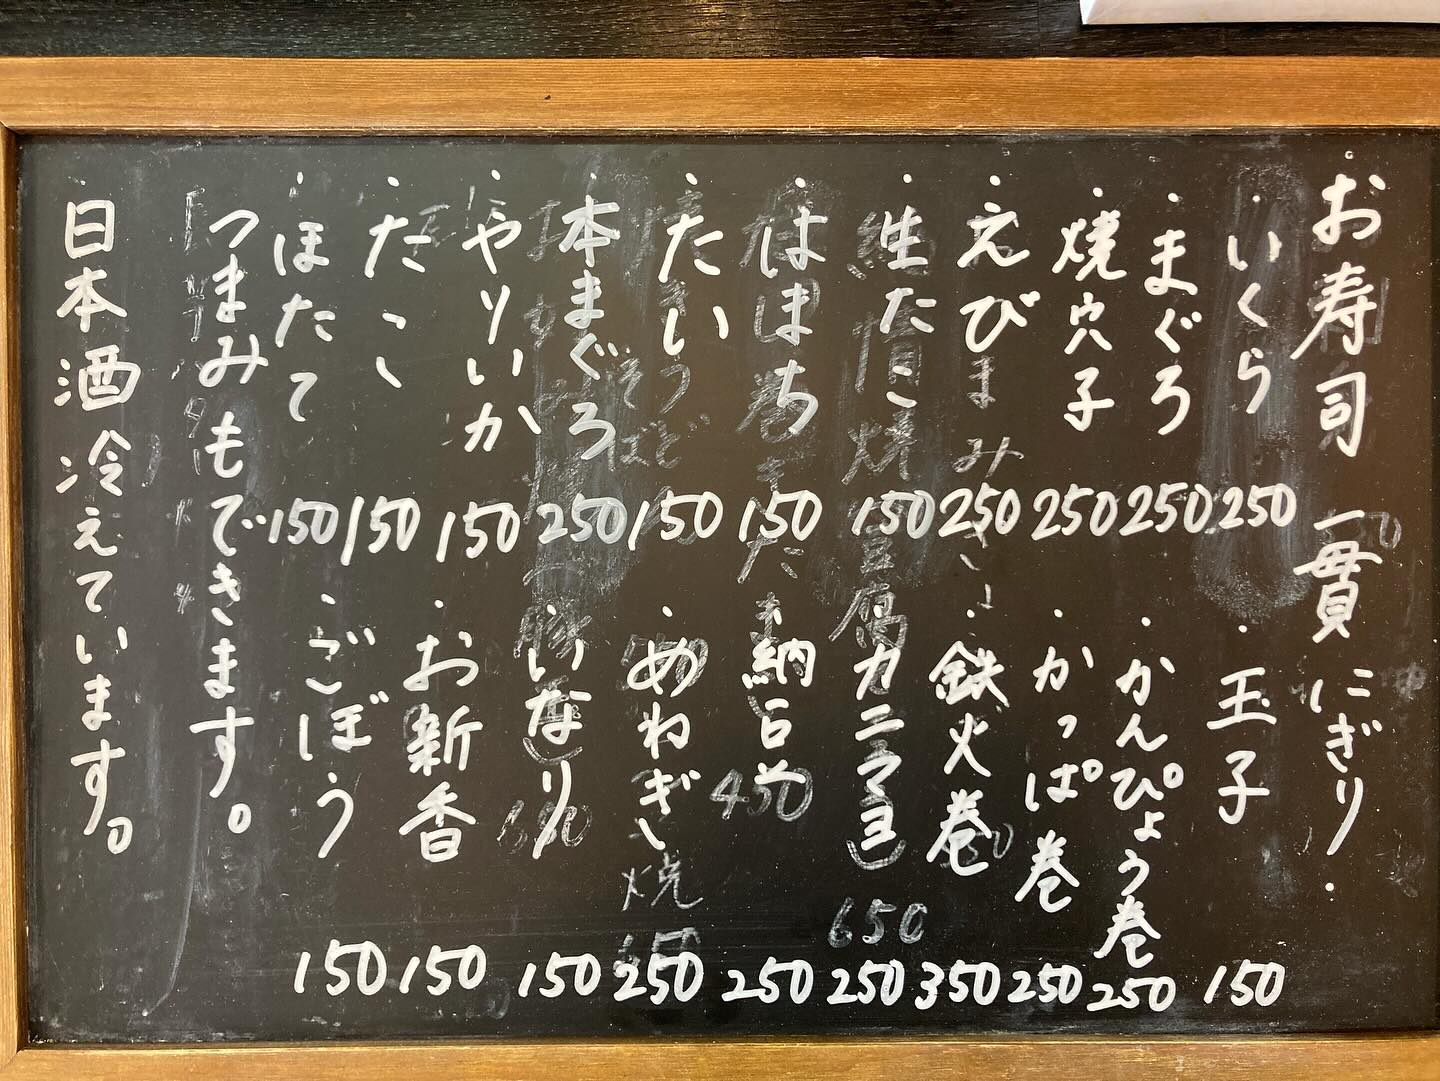 お寿司 一貫 にぎり.
・いくら 250
・まぐろ 250
・焼穴子 250
・えび 250
・生たこ 150
・はまち 150
・たい 150
・本まぐろ 250
・やりいか 150
・たこ 150
・ほたて 150
・玉子 150
・かんぴょう巻 250
・かっぱ巻 250
・鉄火巻 350
・カニマヨ 250
・納豆 250
・めねぎ 250
・いなり 150
・お新香 150
・ごぼう 150
つまみもできます。
日本酒冷えています。